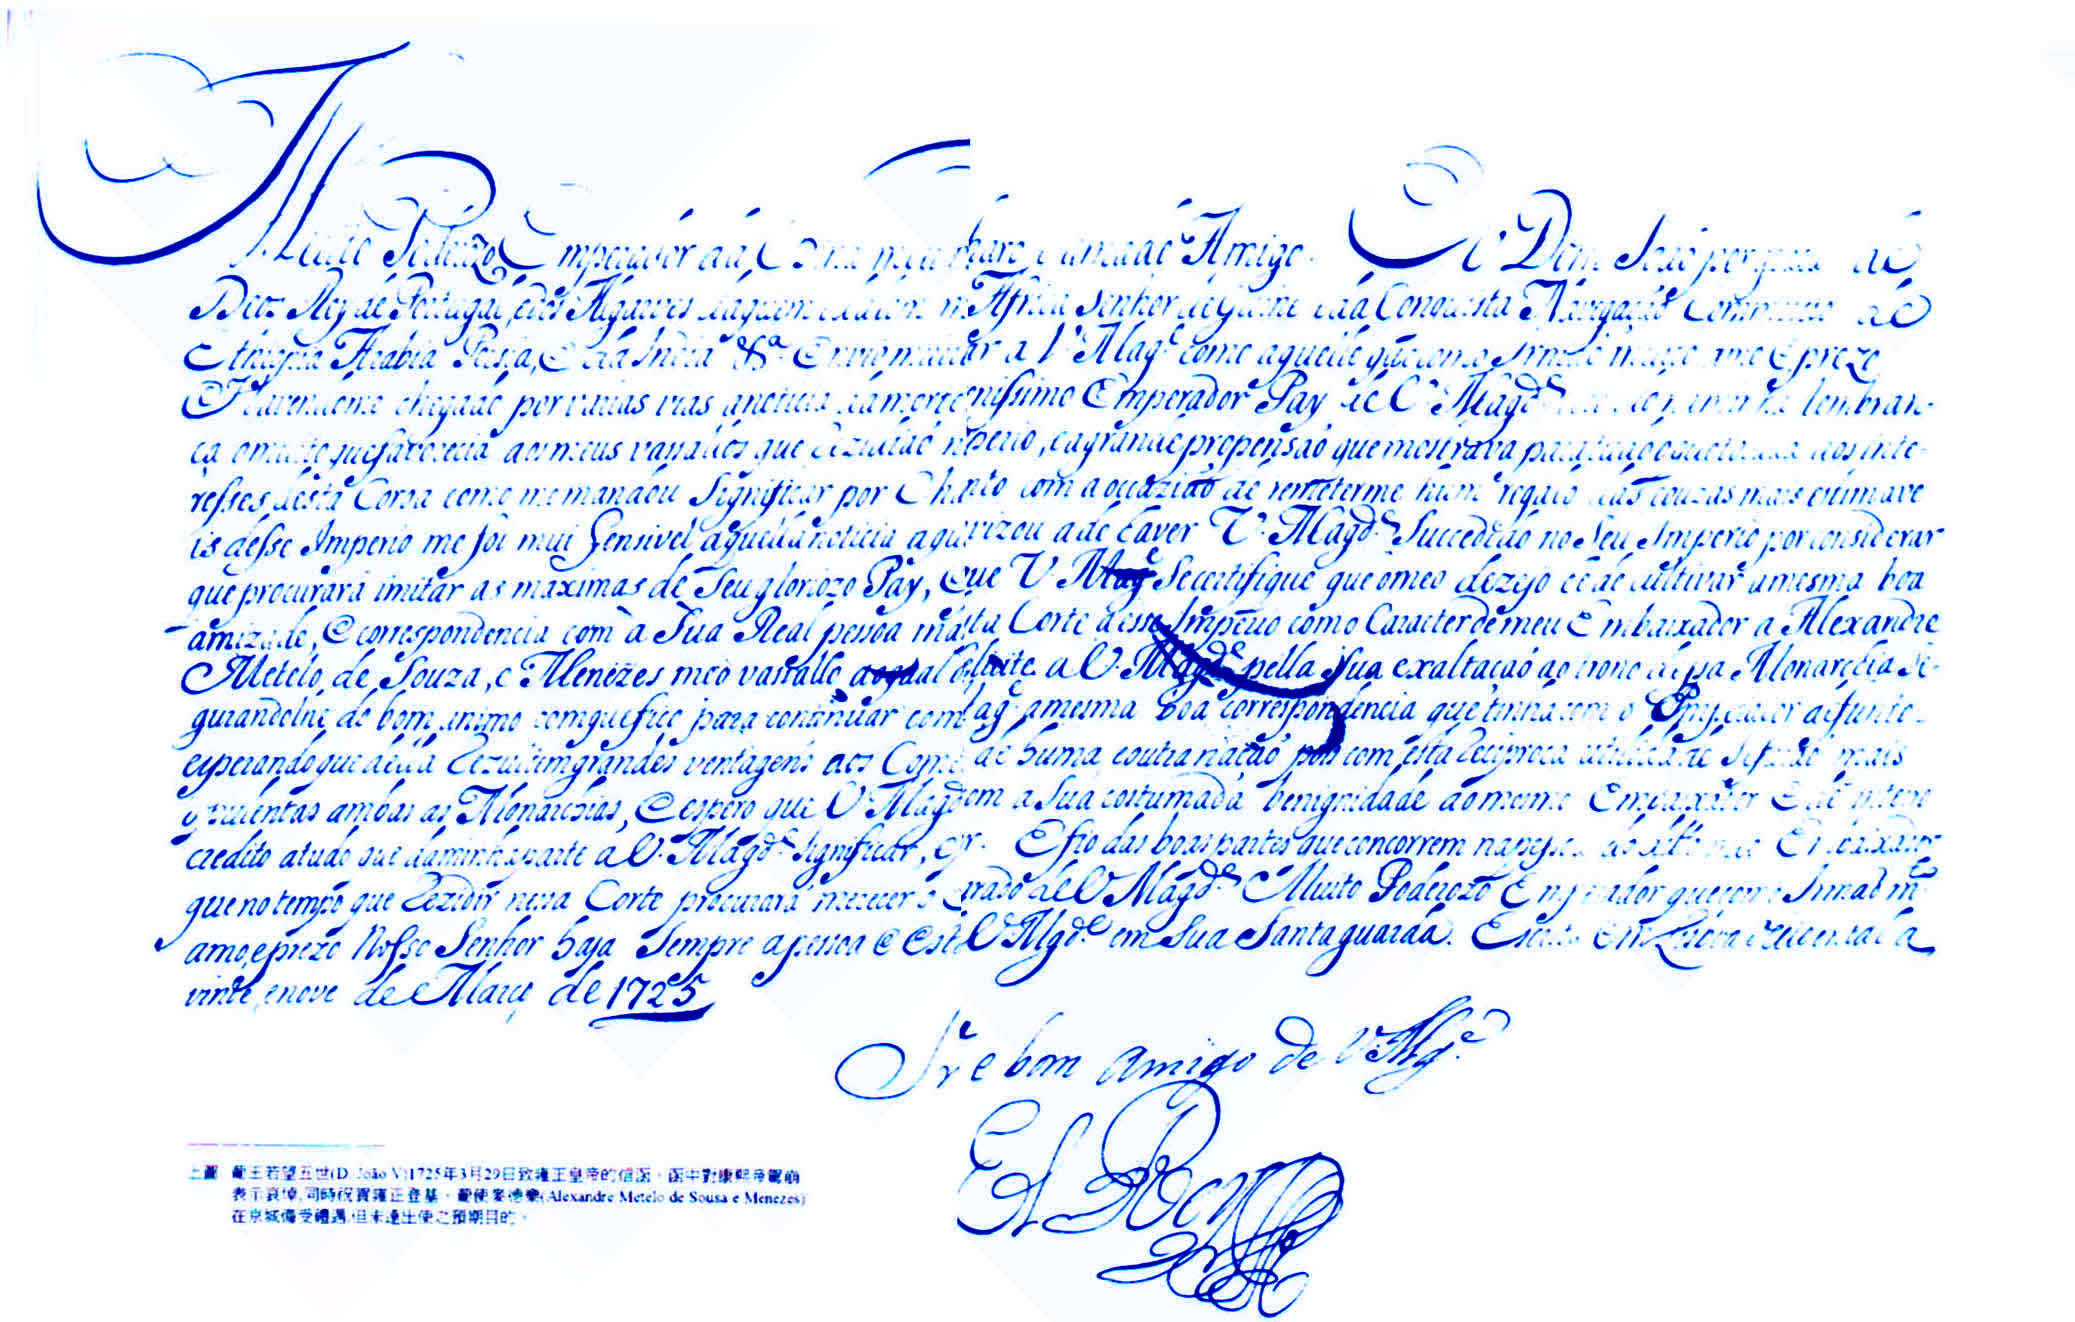 Muito Poderozo Emperador da China meu charo e amado Amigo. Eu Dom João por graça de
Deos Rey de Portugal, e dos Algarves daquem e dalem Africa Senhor de Guiné e da Conquista Navegação Commercio de
Ethiopia Arabia Persia, e da India &ª. Envio a V. Magᵉ como aquelle que como Irmão amo e prezo
Havendome chegado por varias vias a noticia da morte nissimo Emperador Pay de V. Magdᵉ lembran-
ça o muito que favorecia aos meus vassallos que rezidião perio, e a grande propensão que mostrava para aos inte-
resses desta Coroa como me mandou Significar por com a occazião de remeterme hum regalo das couzas mais estimave
is desse Imperio me foi mui Sensivel aquella noticia a de haver V. Magdᵉ Succedido no Seu Imperio por considerar
que procurará imitar as maximas de Seu gloriozo Pay, que V. Magᵉ Se certifique que o meo dezejo he de cultivar a mesma boa
amizade, e correspondencia com a Sua Real pessoa ta Corte a esse Imperio com o Caracter de meu Embaixador a Alexandre
Metelo de Souza, e Menezes meo vassallo a V. Magdᵉ pella Sua exaltação ao trono dessa Monarchia Se-
gurandolhe do bom animo com que fico para continuar com agᵉ a mesma boa correspondencia que tinha com o Emperador defunto
esperando que della Rezultem grandes ventagens aos Com de huma, e outra nação, pois com esta Reciproca utilidade Se farão mais
opulentas ambas as Monarchias, e espero que V. Magdᵉ com a Sua costumada benignidade ao mesmo Embaixador e dê inteiro
credito a tudo que da minha parte a V. Magdᵉ Significar, E fio das boas partes que concorrem na pessoa do dito meo Embaixador
que no tempo que Rezidir nessa Corte procurará merecer o grado de V. Magdᵉ Muito Poderozo Emperador que como Irmaõ mᵗᵒ
amo, e prezo Nosso Senhor haja Sempre a pessoa e Esta V. Magdᵉ em Sua Santa guarda. Escrita em Lisboa Occidental a
vinte e nove de Março de 1725
e bom Amigo de V. Mgᵉ
El Rey
上圖 葡王若望五世(D. João V)1725年3月29日致雍正皇帝的信函。函中對康熙帝駕崩
表示哀悼,同時祝賀雍正登基。葡使麥德樂(Alexandre Metelo de Sousa e Menezes)
在京城備受禮遇,但未達出使之預期目的。